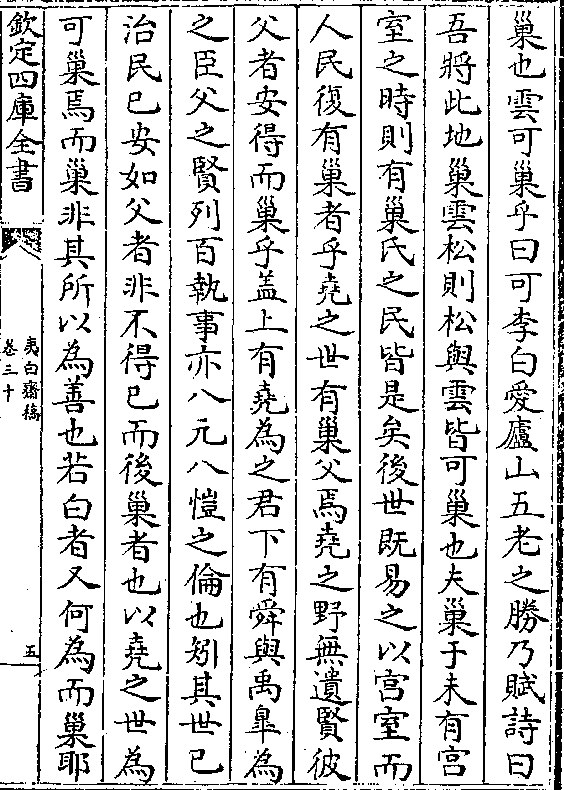 巢也雲可巢乎曰可李白愛廬山五老之勝乃賦詩曰
吾將此地巢雲松則松與雲皆可巢也夫巢于未有宫
室之時則有巢氏之民皆是矣後世既易之以宫室而
人民復有巢者乎堯之世有巢父焉堯之野無遺賢彼
父者安得而巢乎盖上有堯為之君下有舜與禹臯為
之臣父之賢列百執事亦八元八愷之倫也矧其世已
治民已安如父者非不得已而後巢者也以堯之世為
可巢焉而巢非其所以為善也若白者又何為而巢耶
欽定四庫全書
夷白齋稿
卷三十
五